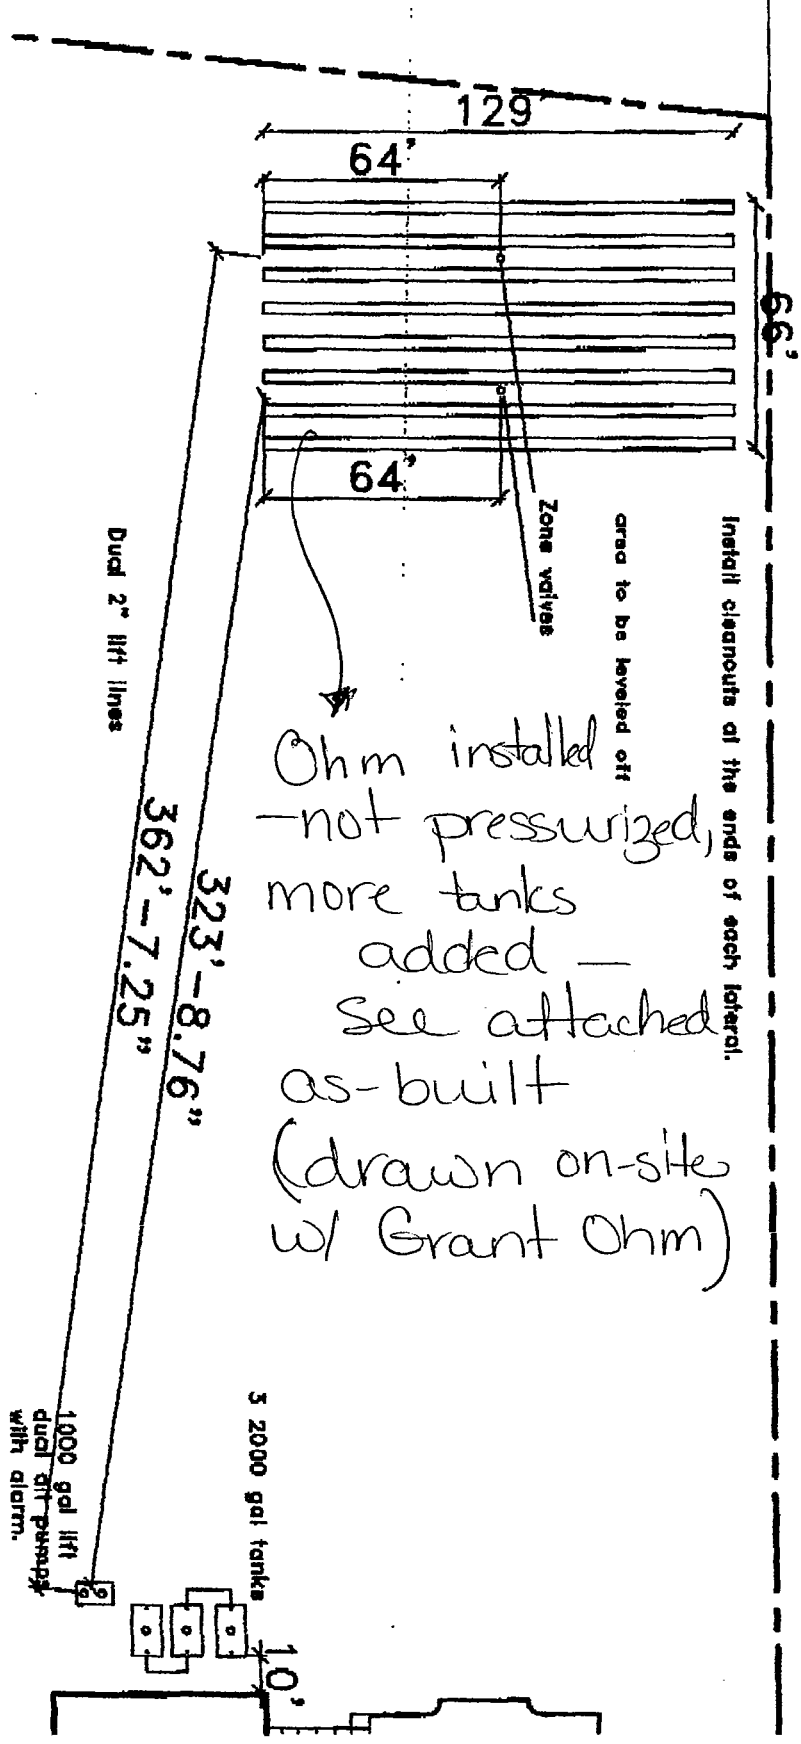 129'
64'
66'
64'
Zone valves
area to be leveled off
Install cleanouts at the ends of each lateral.
Dual 2" lift lines
362'-7.25"
323'-8.76"
Ohm installed
-not pressurized,
more tanks
added —
See attached
as-built
(drawn on-site
w/ Grant Ohm)
3 2000 gal tanks
1000 gal lift
dual alt pumps
with alarm.
10'